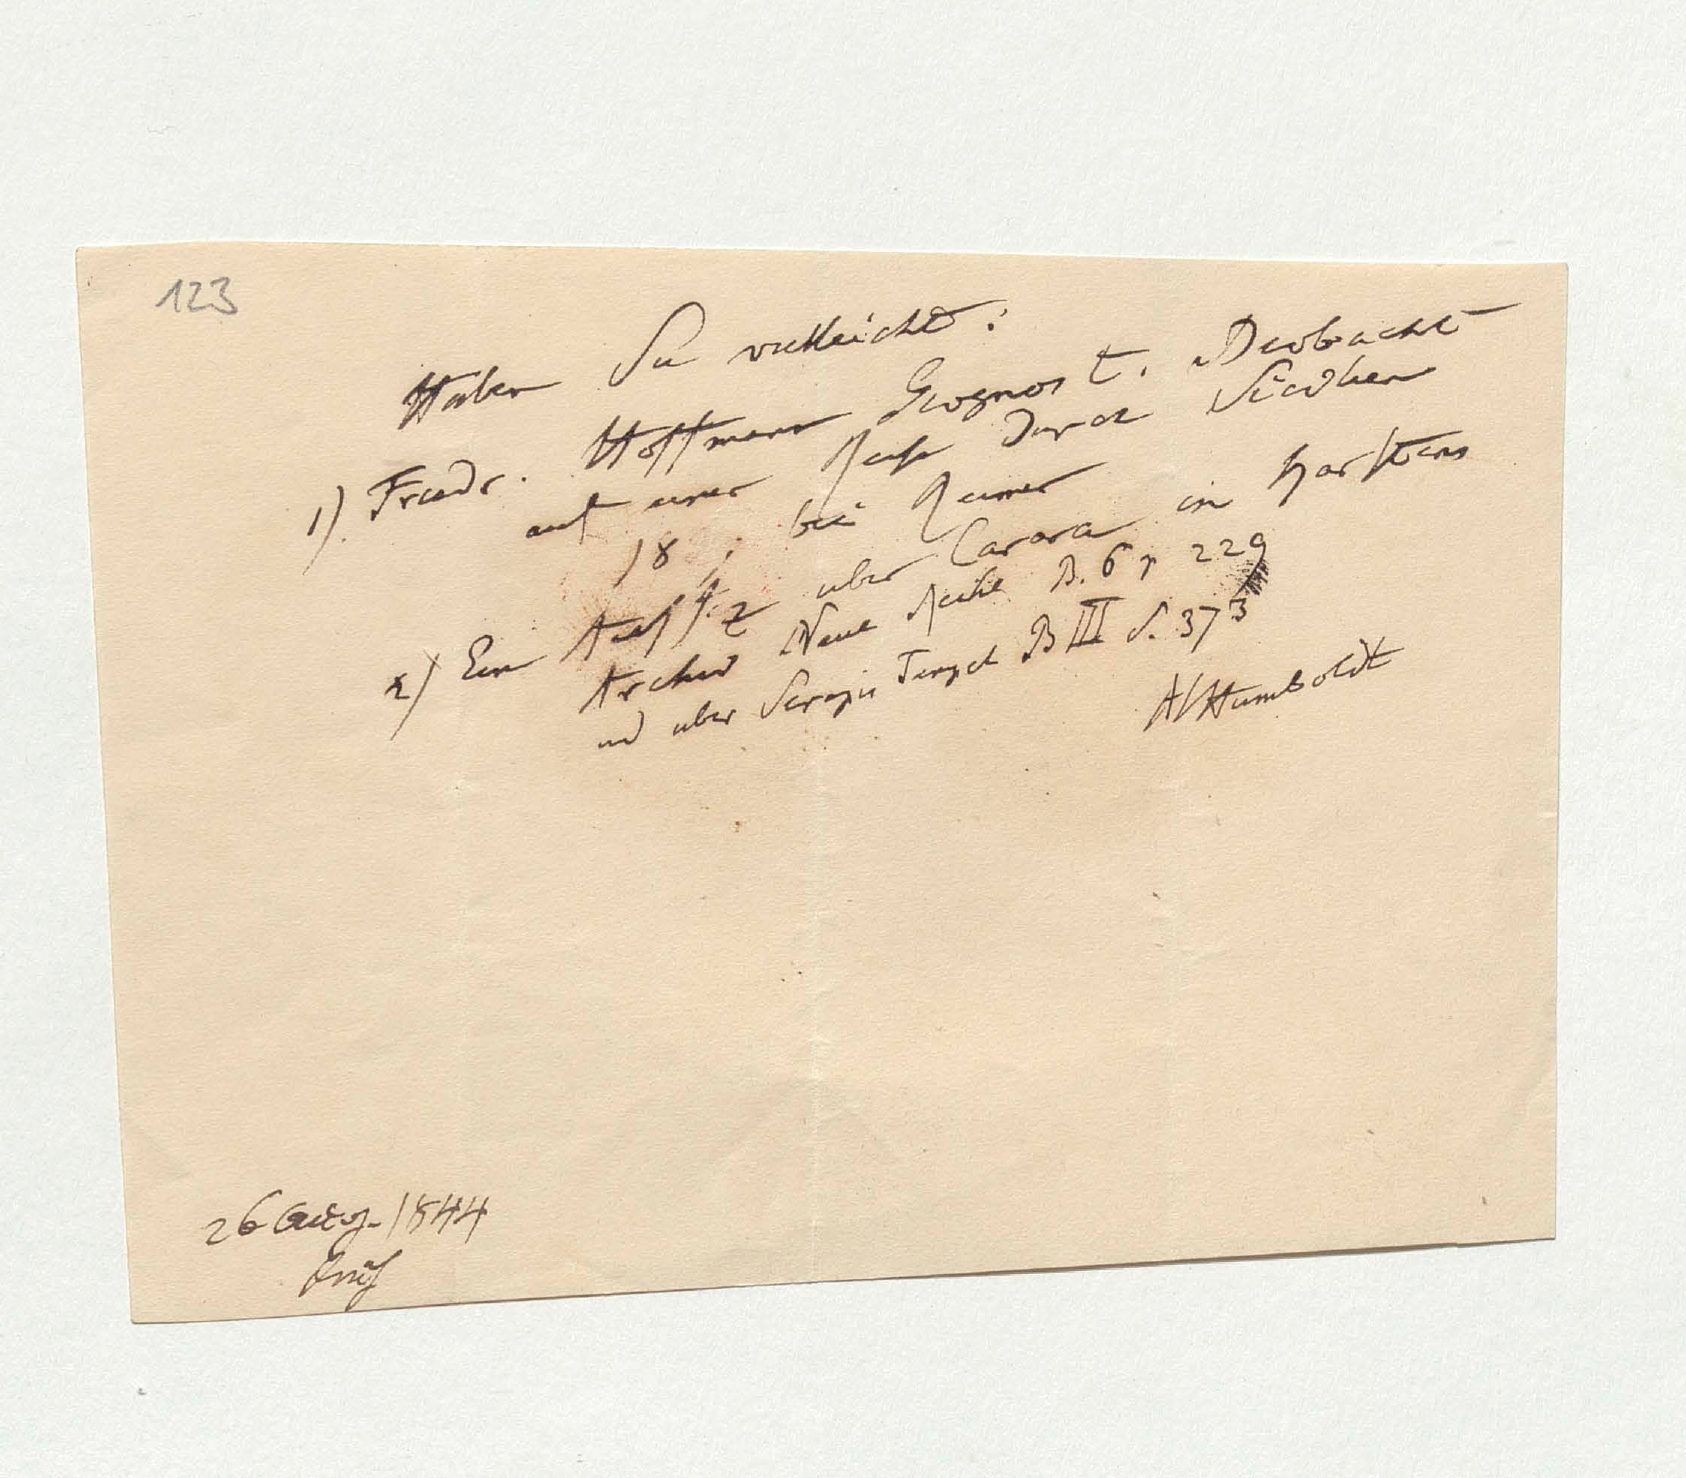 123
Haben Sie vielleicht:
1) Friedr. Hoffmann Geognost. Beobacht
auf einer Reise durch Sicilien
18 , bei Reimer
2) Ein Aufsatz über Carara in Karstens
Archiv Neue Reihe B. 6 p 229
und über Serapis Tempel B III S. 373
AlHumboldt
26 Aug. 1844